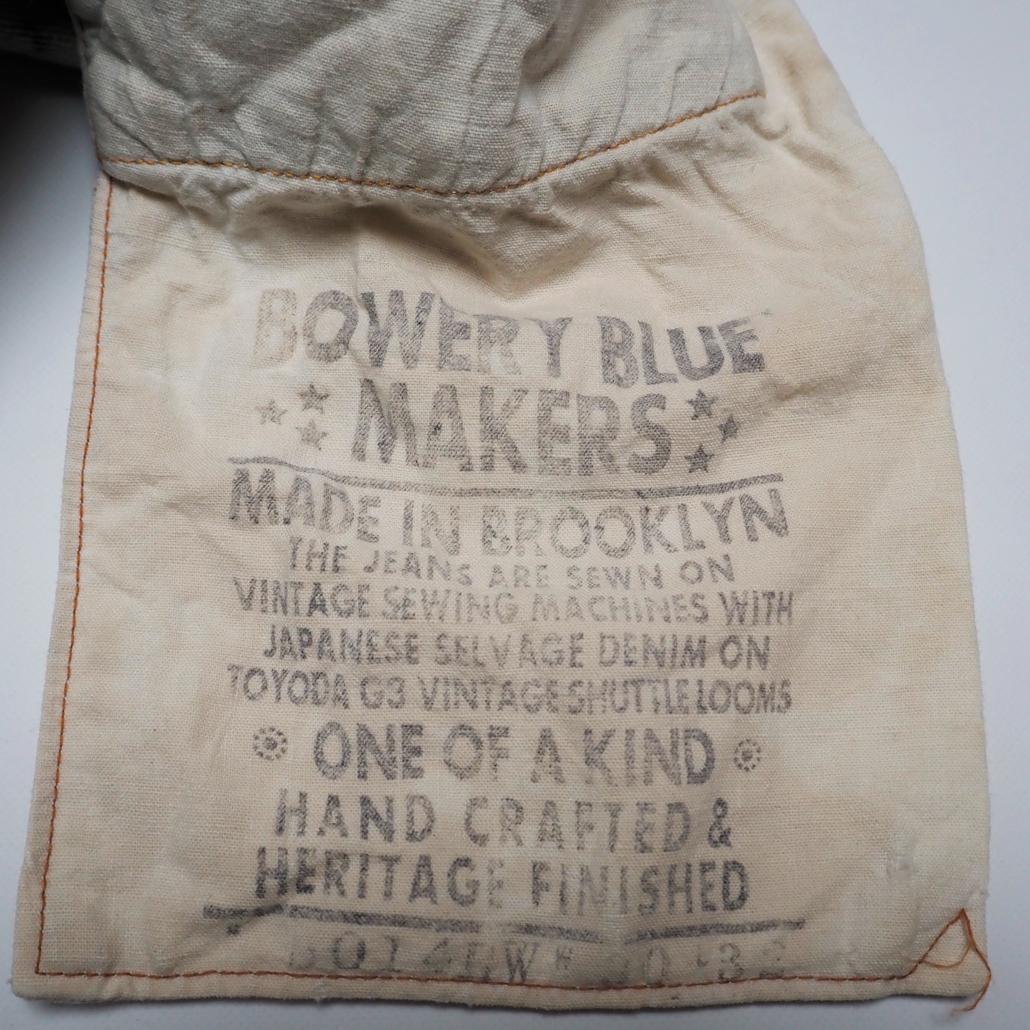 BOWERY BLUE
MAKERS
MADE IN BROOKLYN
THE JEANS ARE SEWN ON
VINTAGE SEWING MACHINES WITH
JAPANESE SELVAGE DENIM ON
TOYODA G3 VINTAGE SHUTTLE LOOMS
ONE OF A KIND
HAND CRAFTED &
HERITAGE FINISHED